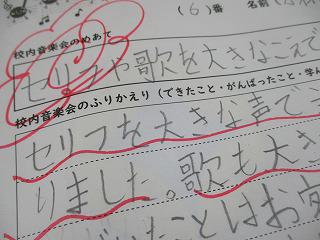 (6)番 名前
校内音楽会のめあて
セリフや歌を大きなこえで
校内音楽会のふりかえり（できたこと・がんばったこと・学ん
セリフを大きな声で
りました。歌も大き
ことはお客